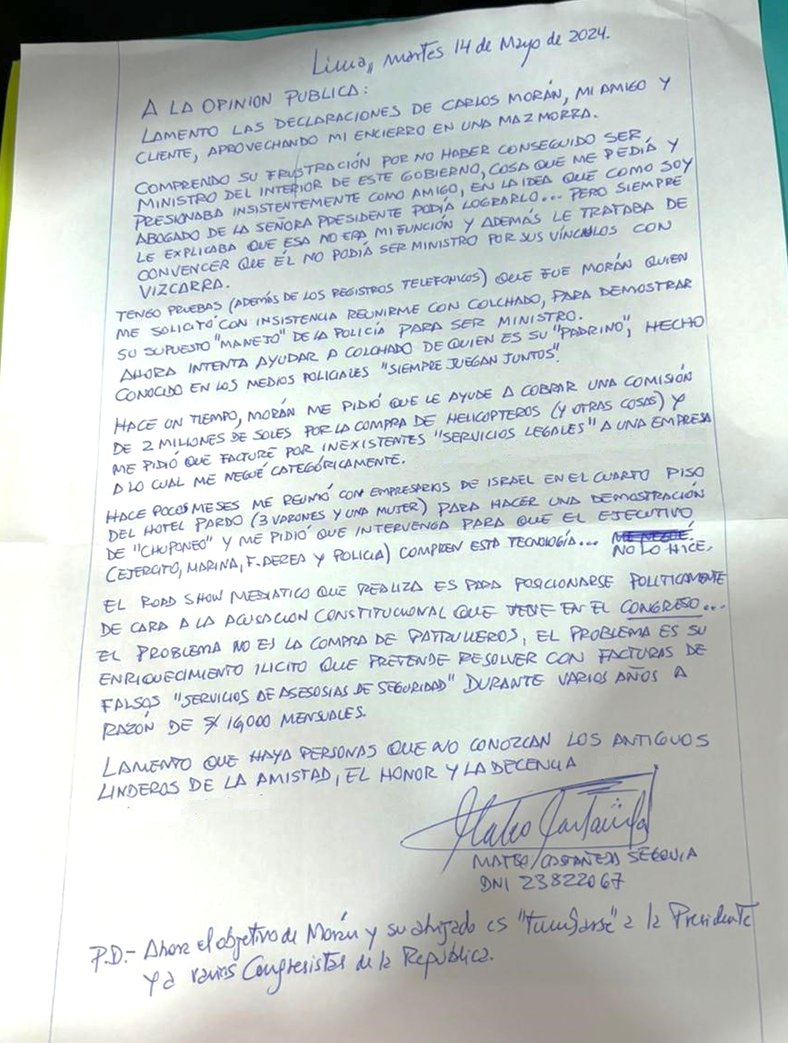 Lima, martes 14 de Mayo de 2024.
A LA OPINION PUBLICA:
LAMENTO LAS DECLARACIONES DE CARLOS MORÁN, MI AMIGO Y
CLIENTE, APROVECHANDO MI ENCIERRO EN UNA MAZMORRA.
COMPRENDO SU FRUSTRACIÓN POR NO HABER CONSEGUIDO SER
MINISTRO DEL INTERIOR DE ESTE GOBIERNO, COSA QUE ME PEDIA Y
PRESIONABA INSISTENTEMENTE COMO AMIGO, EN LA IDEA QUE COMO SOY
ABOGADO DE LA SEÑORA PRESIDENTE PODÍA LOGRARLO... PERO SIEMPRE
LE EXPLICABA QUE ESA NO ERA MI FUNCIÓN Y ADEMÁS LE TRATABA DE
CONVENCER QUE ÉL NO PODÍA SER MINISTRO POR SUS VÍNCULOS CON
VIZCARRA.
TENGO PRUEBAS (ADEMÁS DE LOS REGISTROS TELEFONICOS) QUE FUE MORÁN QUIEN
ME SOLICITÓ CON INSISTENCIA REUNIRME CON COLCHADO, PARA DEMOSTRAR
SU SUPUESTO "MANEJO" DE LA POLICÍA PARA SER MINISTRO.
AHORA INTENTA AYUDAR A COLCHADO DE QUIEN ES SU "PADRINO", HECHO
CONOCIDO EN LOS MEDIOS POLICIALES "SIEMPRE JUEGAN JUNTOS".
HACE UN TIEMPO, MORÁN ME PIDIÓ QUE LE AYUDE A COBRAR UNA COMISIÓN
DE 2 MILLONES DE SOLES POR LA COMPRA DE HELICOPTEROS (Y OTRAS COSAS) Y
ME PIDIÓ QUE FACTURE POR INEXISTENTES "SERVICIOS LEGALES" A UNA EMPRESA
A LO CUAL ME NEGUÉ CATEGÓRICAMENTE.
HACE POCOS MESES ME REUNIÓ CON EMPRESARIOS DE ISRAEL EN EL CUARTO PISO
DEL HOTEL PARDO (3 VARONES Y UNA MUJER) PARA HACER UNA DEMOSTRACIÓN
DE "CHUPONEO" Y ME PIDIÓ QUE INTERVENGA PARA QUE EL EJECUTIVO
(EJERCITO, MARINA, F. AEREA Y POLICIA) COMPREN ESTA TECNOLOGÍA... ME NEGUÉ.
NO LO HICE.
EL ROAD SHOW MEDIATICO QUE REALIZA ES PARA POSICIONARSE POLITICAMENTE
DE CARA A LA ACUSACION CONSTITUCIONAL QUE TIENE EN EL CONGRESO...
EL PROBLEMA NO ES LA COMPRA DE PATRULLEROS, EL PROBLEMA ES SU
ENRIQUECIMIENTO ILICITO QUE PRETENDE RESOLVER CON FACTURAS DE
FALSOS "SERVICIOS DE ASESOSIAS DE SEGURIDAD" DURANTE VARIOS AÑOS A
RAZÓN DE S/ 19,000 MENSUALES.
LAMENTO QUE HAYA PERSONAS QUE NO CONOZCAN LOS ANTIGUOS
LINDEROS DE LA AMISTAD, EL HONOR Y LA DECENCIA
Mateo Castañeda
MATEO CASTAÑEDA SEGOVIA
DNI 23822067
P.D.- Ahora el objetivo de Morán y su ahijado es "tumbarse" a la Presidente
y a varios Congresistas de la República.